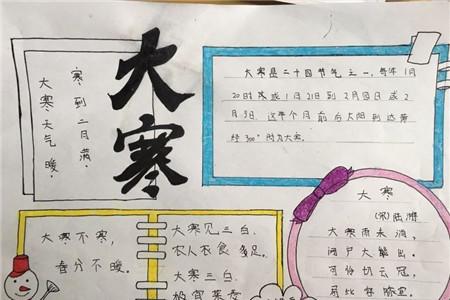 大寒
寒到二月满。
大寒天气暖，
大寒是二十四节气之一。每年1月
20日或1月21日到2月4日或2
月5日
经300°时为大寒。
大寒不寒，
春分不暖。
大寒见三白，
农人衣食足。
大寒三白，
大寒
(宋)陆游
大寒雪未消，
闭户不能出。
可怜切云冠，